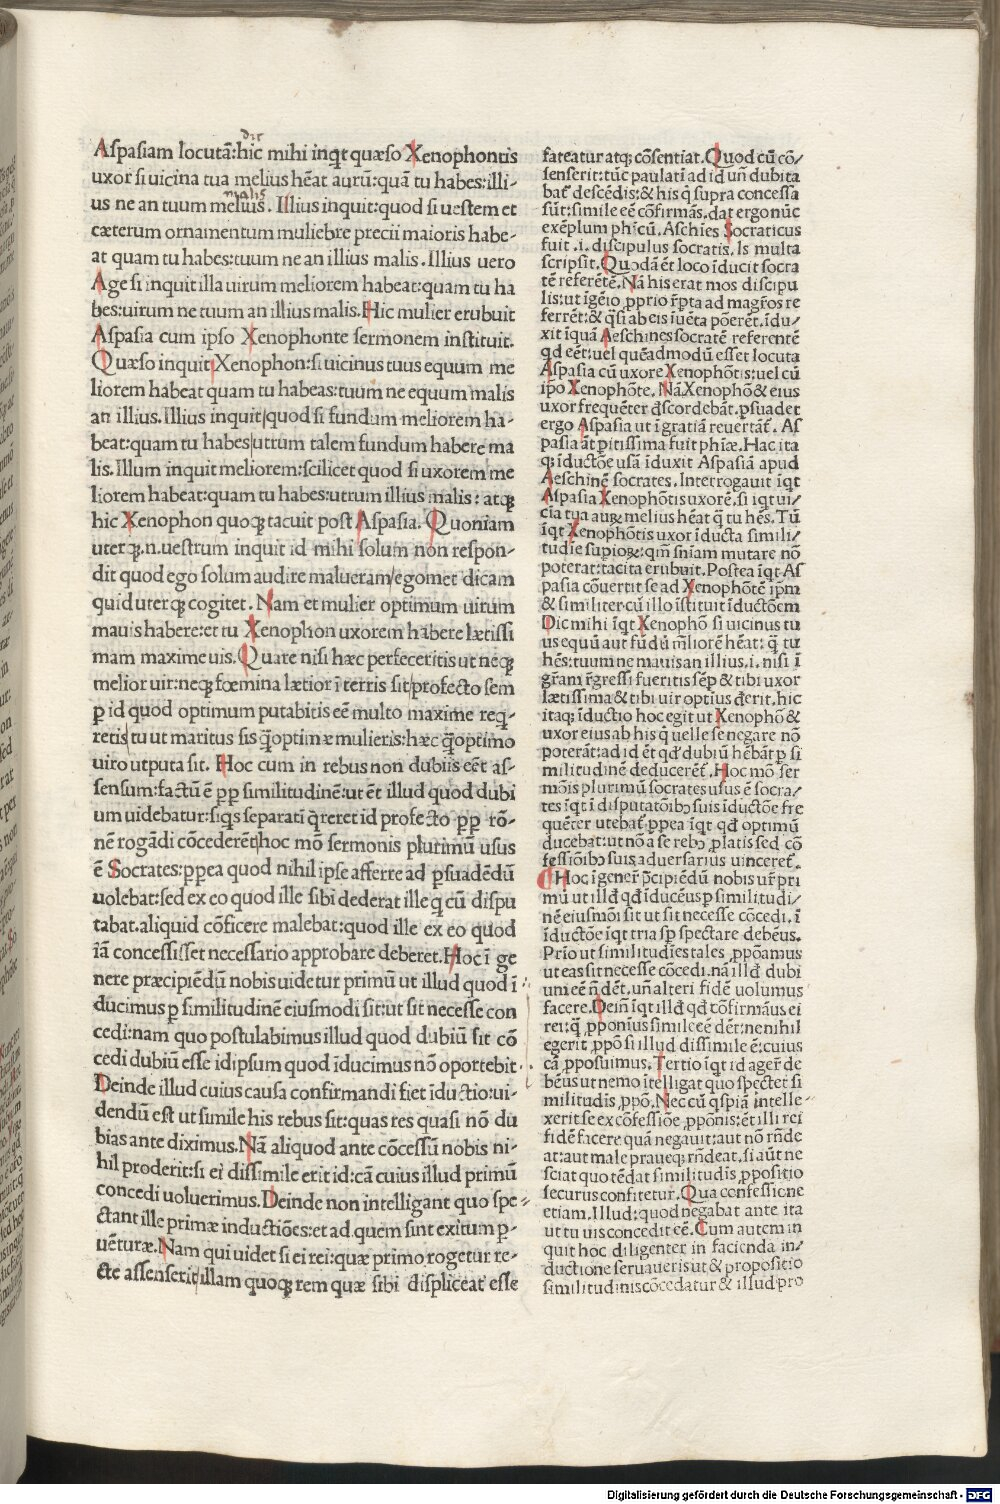 dic
Aspasiam locutā:hic mihi inqt quæso Xenophontis
uxor si uicina tua melius hēat aurū:quā tu habes:illi-
malis
us ne an tuum meluis. Illius inquit:quod si uestem et
cæterum ornamentum muliebre precii maioris habe-
at quam tu habes:tuum ne an illius malis. Illius uero
Age si inquit illa uirum meliorem habeat:quam tu ha
bes:uirum ne tuum an illius malis. Hic mulier erubuit
Aspasia cum ipso Xenophonte sermonem instituit.
Quæso inquit Xenophon:si uicinus tuus equum me
liorem habeat quam tu habeas:tuum ne equum malis
an illius. Illius inquit/quod si fundum meliorem ha-
beat:quam tu habes/utrum talem fundum habere ma
lis. Illum inquit meliorem:scilicet quod si uxorem me
liorem habeat:quam tu habes:utrum illius malis: atqꝫ
hic Xenophon quoqꝫ tacuit post Aspasia. Quoniam
uterqꝫ.n.uestrum inquit id mihi solum non respon-
dit quod ego solum audire malueram/egomet dicam
quid uterqꝫ cogitet. Nam et mulier optimum uirum
mauis habere:et tu Xenophon uxorem habere lætissi
mam maxime uis. Quare nisi hæc perfeceritis ut neqꝫ
melior uir:neqꝫ fœmina lætior ī terris sit/profecto sem
p id quod optimum putabitis eē multo maxime reqͥ-
retis/tu ut maritus sis q̄optimæ mulieris:hæc q̄optimo
uiro utputa sit. Hoc cum in rebus non dubiis eēt as-
sensum:factū ē ꝓp similitudinē:ut ēt illud quod dubi
um uidebatur:siqͥs separati q̄reret id profecto ꝓp rō-
nē rogādi cōcederēt/hoc mō sermonis plurimū usus
ē Socrates:ꝓpea quod nihil ipse afferre ad ꝑsuadēdū
uolebat:sed ex eo quod ille sibi dederat ille q̄ cū dispu
tabat.aliquid cōficere malebat:quod ille ex eo quod
īā concessisset necessario approbare deberet. Hoc ī ge
nere præcipiēdū nobis uidetur primū ut illud quod ī
ducimus ꝑ similitudinē eiusmodi sit:ut sit necesse con
cedi:nam quo postulabimus illud quod dubiū sit cō
cedi dubiū esse id ipsum quod īducimus nō oportebit.
Deinde illud cuius causa confirmandi fiet īductio:ui-
dendū est ut simile his rebus sit:quas res quasi nō du
bias ante diximus. Nā aliquod ante cōcessū nobis ni-
hil proderit:si ei dissimile erit id:cā cuius illud primū
concedi uoluerimus. Deinde non intelligant quo spe-
ctant ille primæ inductiōes:et ad quem sint exitum ꝑ-
uēturæ. Nam qui uidet si ei rei:quæ primo rogetur re-
cte assenserit/illam quoqꝫ rem quæ sibi displiceat esse
fateatur atqꝫ cōsentiat. Quod cū cō/
senserit:tūc paulatī ad id uñ dubita
bat̄ descēdis:& his q̄ supra concessa
sūt:simile eē cōfirmās.dat ergo nūc
exēplum phīcū. Aschies Socraticus
fuit .i. discipulus socratis. Is multa
scripsit. Quodā ēt loco īducit socra
tē referētē. Nā his erat mos discipu
lis:ut īgēio ꝓprio rꝑta ad magr̄os re
ferrēt: & qͣsi ab eis īuēta pōerēt.īdu/
xit īquā Aeschines socratē referentē
qd eēt:uel quēadmodū esset locuta
Aspasia cū uxore Xenophōtis:uel cū
ip̄o Xenophōte. Nā Xenophō & eius
uxor frequēter discordebāt. ꝑsuadet
ergo Aspasia ut ī gratiā reuertāt̄. As
pasia āt ꝑitissima fuit phīæ. Hac ita
qꝫ īductōe usā īduxit Aspasiā apud
Aeschinē socrates. Interrogauit īqt
Aspasia Xenophōtis uxorē. si īqt ui/
cia tua auꝝ melius hēat q̄ tu hēs. Tū
īqt Xenophōtis uxor īducta simili/
tudīe supioꝝ: qm̄ sn̄iam mutare nō
poterat:tacita erubuit. Postea īqt As
pasia cōuertit se ad Xenophōtē ip̄m
& similiter cū illo īstituit īductōem
Dic mihi īqt Xenophō si uicinus tu
us equū aut fūdū m̄liorē hēat: q̄ tu
hēs:tuum ne mauis an illius .i. nisi ī
gr̄am r̄gressi fueritis sēꝑ & tibi uxor
lætissima & tibi uir optius q̄erit. hic
itaqꝫ īductio hoc egit ut Xenophō &
uxor eius ab his q̄ uelle se negare nō
poterāt:ad id ēt qd dubiū hēbāt ꝑ si
militudinē deducerēt̄. Hoc mō ser
mōis plurimū socrates usus ē socra/
tes īqt ī disputatōibꝰ suis īductōe fre
quēter utebat̄. ꝓpea īqt qd optimū
ducebat:ut nō a se rebꝰ ꝓlatis sed cō
fessiōibꝰ suis aduersarius uinceret̄.
Hoc ī gener̄ p̄cipiēdū nobis ur̄ pri
mū ut illd qd īducēus ꝑ similitudi/
nē eiusmōi sit ut sit necesse cōcedi. ī
īductōe īqt tria sꝑ spectare debēus.
Prīo ut similitudīes tales ꝓpōamus
ut eas sit necesse cōcedi.nā illd dubi
um eē n̄ dēt.uñ alteri fidē uolumus
facere. Dein īqt illd qd cōfirmāus ei
rei:q̄ ꝓponius simile eē dēt:ne nihil
egerit ꝓpō si illud dissimile ē:cuius
cā ꝓposuimus. Tertio īqt id ager̄ de
bēus ut nemo ītelligat quo spectet si
militudīs ꝓpō. Nec cū qͥspiā intelle-
xerit se ex cōfessiōe ꝓpōnis:ēt illi rei
fidē facere quā negauit:aut nō rn̄de
at:aut male praueqꝫ rn̄deat. si aūt ne
sciat quo tēdat similitudīs ꝓpositio
securus confitetur. Qua confessione
etiam. Illud: quod negabat ante ita
ut tu uis concedit eē. Cum autem in
quit hoc diligenter in facienda in/
ductione seruaueris ut & propositio
similitudinis cōcedatur & illud pro
Digitalisierung gefördert durch die Deutsche Forschungsgemeinschaft - DFG